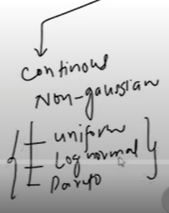 Continous
Non-gaussian
uniform
Log normal
Pareto